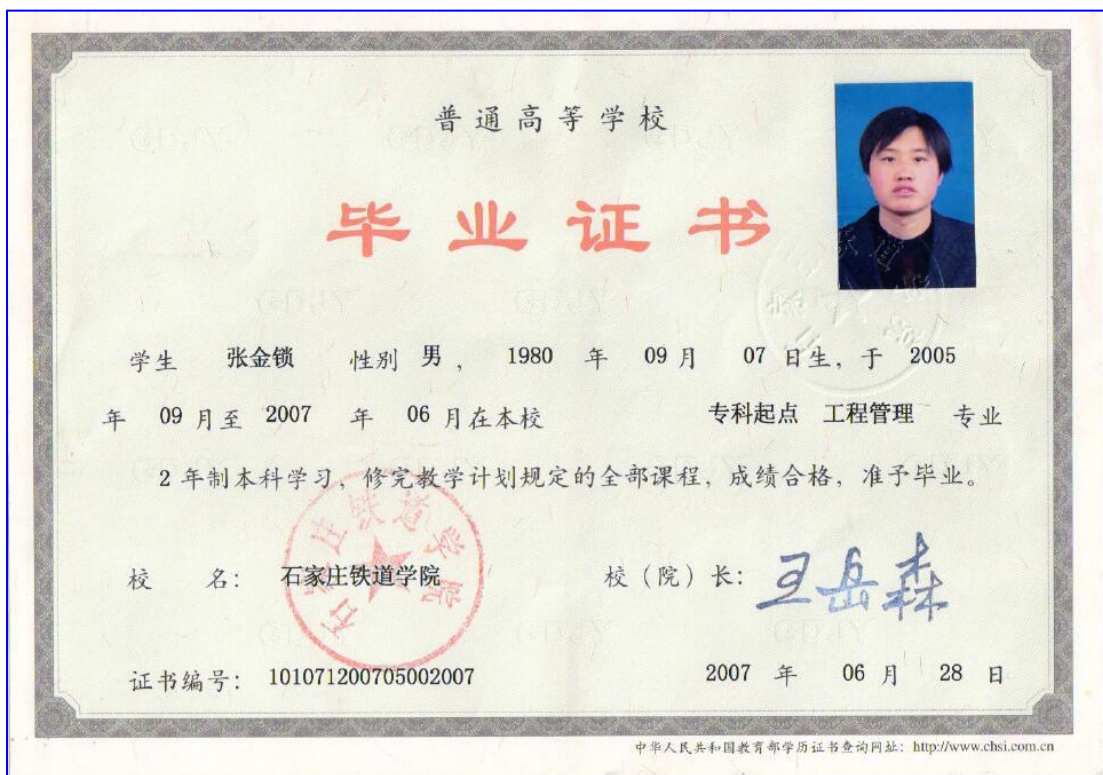 普通高等学校
毕业证书
学生 张金锁 性别 男，1980 年 09 月 07 日生，于 2005
年 09 月至 2007 年 06 月在本校 专科起点 工程管理 专业
2 年制本科学习，修完教学计划规定的全部课程，成绩合格，准予毕业。
校 名：石家庄铁道学院 校（院）长：王岳森
石家庄铁道学院
证书编号：101071200705002007 2007 年 06 月 28 日
中华人民共和国教育部学历证书查询网址：http://www.chsi.com.cn